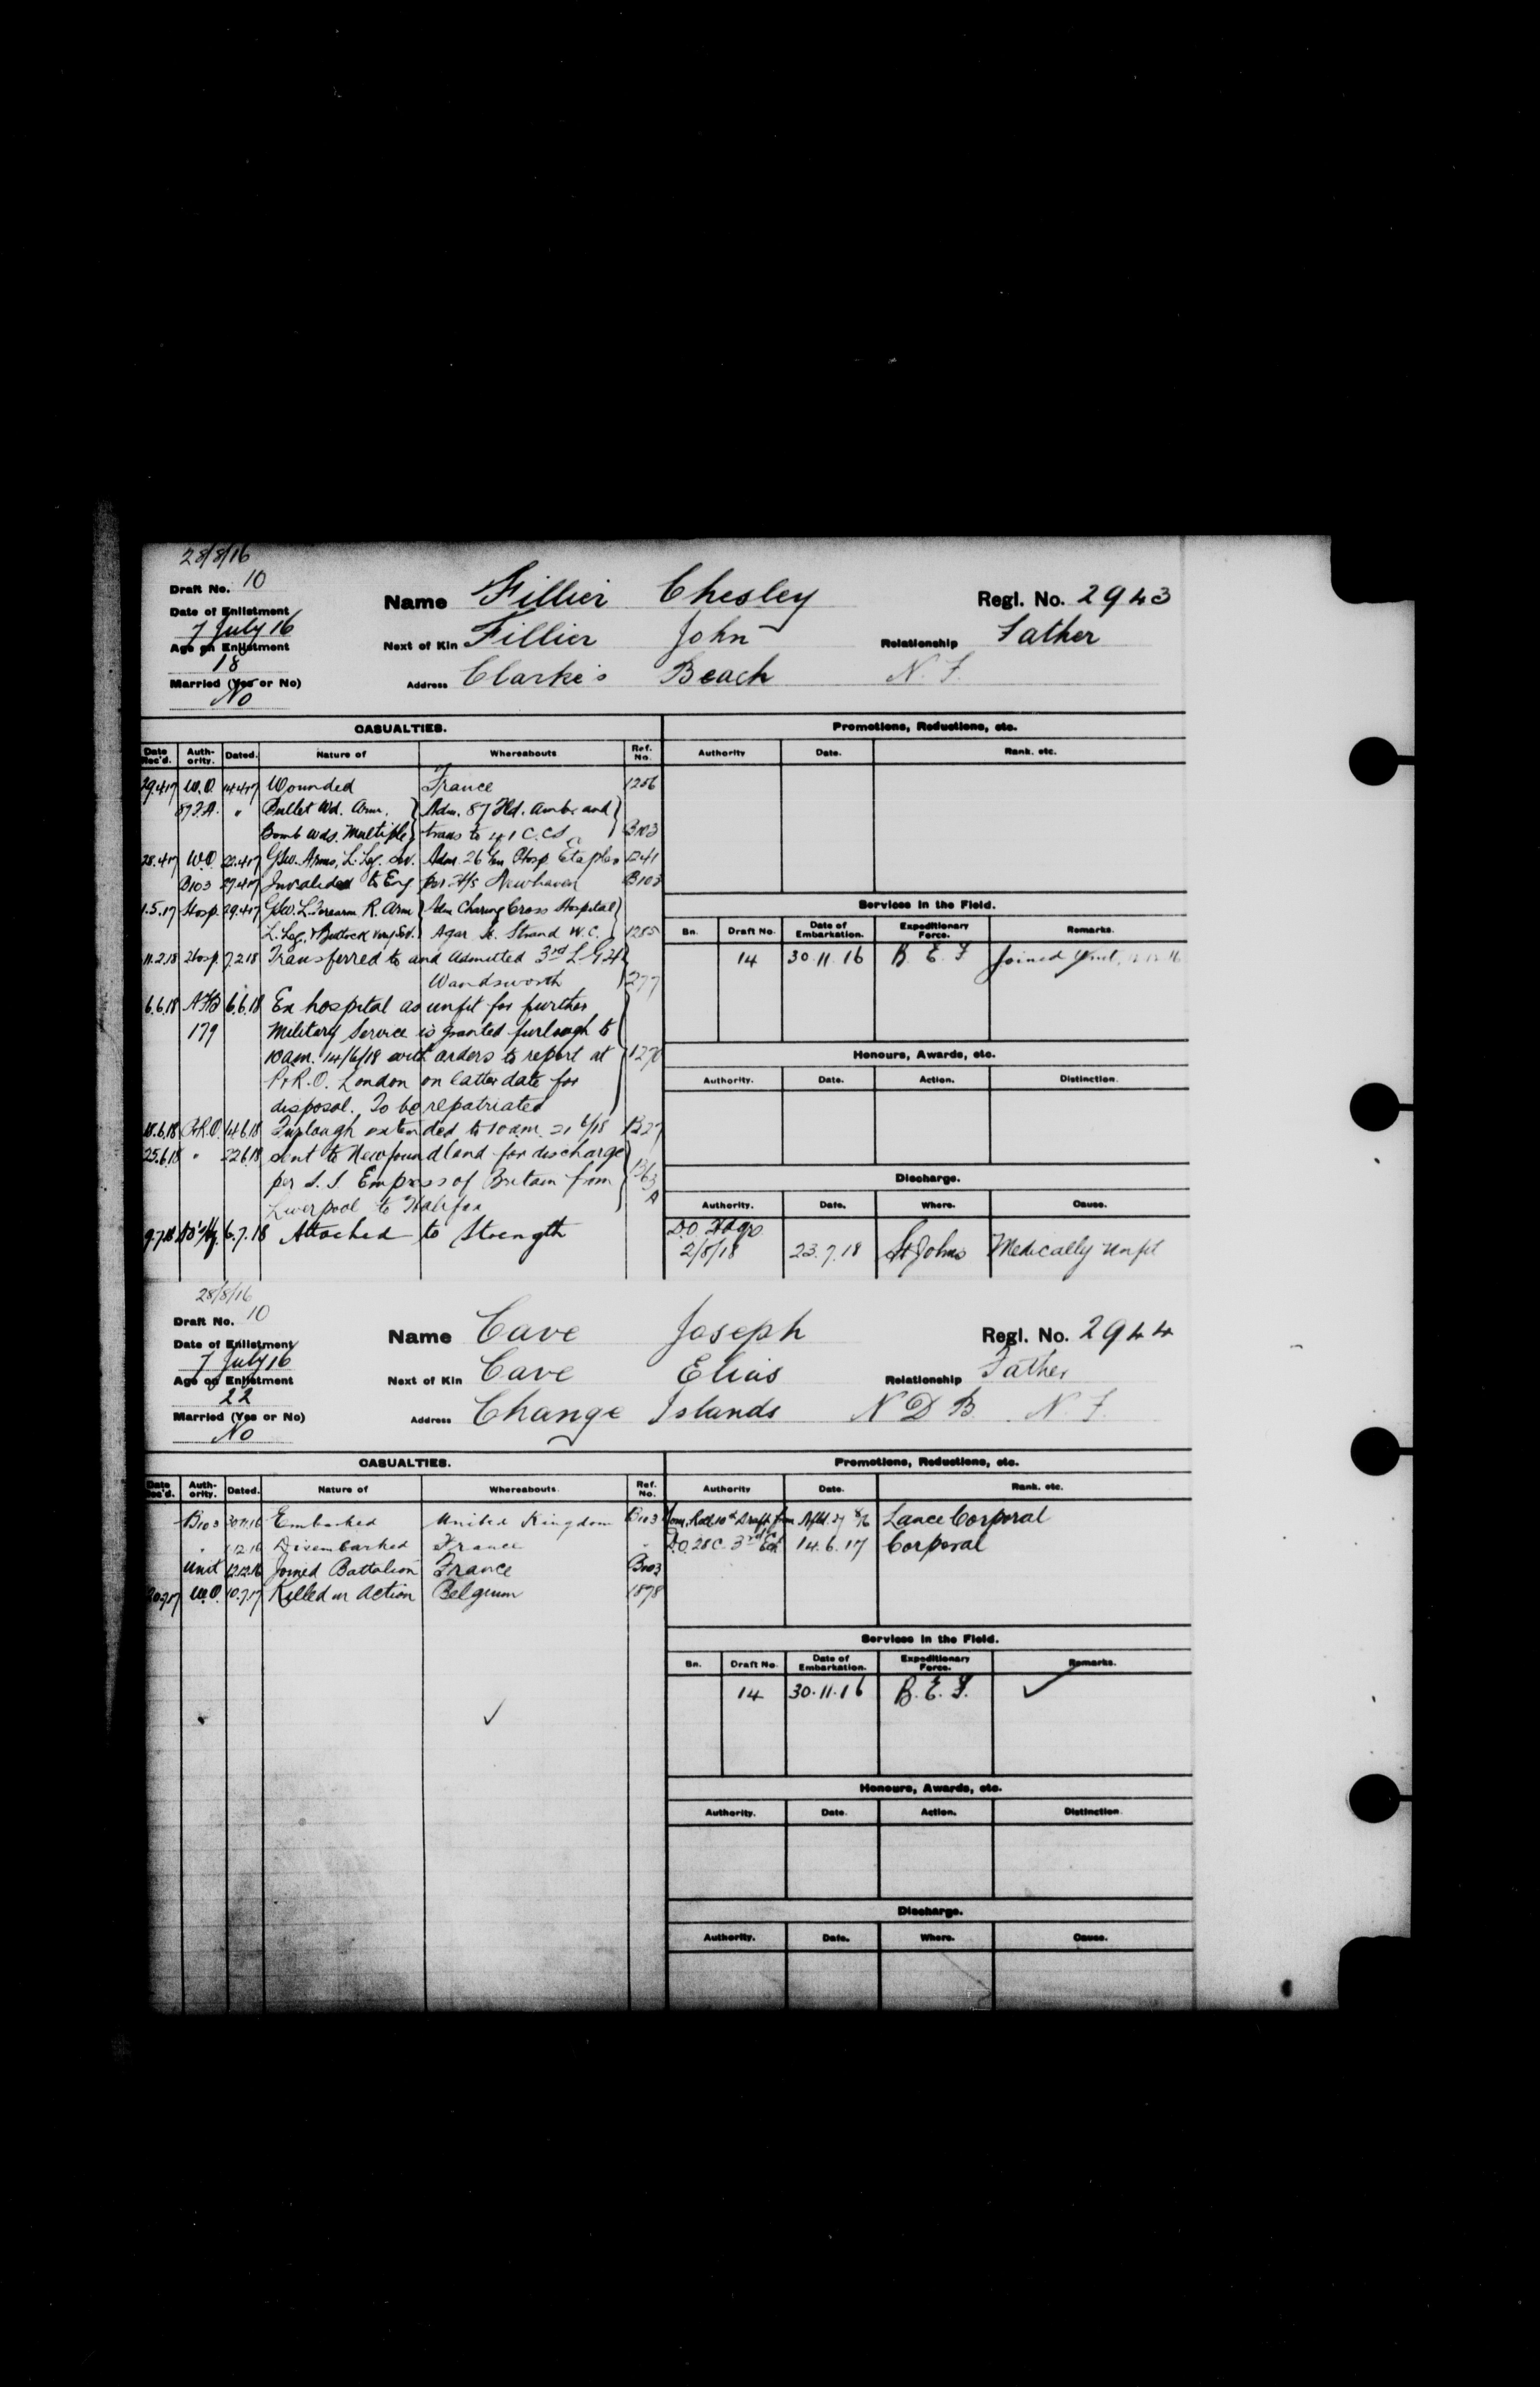 28/8/16
Draft No. 10
Name Fillier Chesley Regl. No. 2943
Date of Enlistment
7 July 16
Next of Kin Fillier John Relationship Father
Age on Enlistment
18
Address Clarke's Beach N. F.
Married (Yes or No)
No
CASUALTIES.
Date Rec'd. Auth-ority. Dated. Nature of Whereabouts Ref. No.
29.4.17 W.O. 14.4.17 Wounded France 1256
87 F.A. " Bullet Wd. Arm. Adm. 87 Fld. Ambr and
Bomb Wds. Multiple trans to 41 C.C.S. B103
28.4.17 W.O 22.4.17 GSW. Arms, L. Leg. Sev. Adm. 26 Gen Hosp Etaples 1241
B103 27.4.17 Invalided to Eng per H/S Newhaven B103
1.5.17 Hosp. 29.4.17 GSW. L. Forearm R. Arm Adm Charing Cross Hospital
L. Leg, & Buttock Very Sev. Agar St. Strand W.C. 1285
11.2.18 Hosp 7.2.18 Transferred to and admitted 3rd L.G.H
Wandsworth 277
6.6.18 AFB 6.6.18 Ex hospital as unfit for further
179 Military Service is granted furlough to
10am. 14/6/18 with orders to report at 1270
P&R.O. London on latter date for
disposal. To be repatriated
18.6.18 P&R.O. 14.6.18 Furlough extended to 10am. 21 6/18 1327
25.6.18 " 22.6.18 sent to Newfoundland for discharge
per S.S. Empress of Britain from 1363 A
Liverpool to Halifax
9.7.18 6.7.18 Attached to Strength
Promotions, Reductions, etc.
Authority Date. Rank. etc.
Services in the Field.
Bn. Draft No. Date of Embarkation. Expeditionary Force. Remarks.
14 30.11.16 B. E. F Joined Unit, 12.12.16
Honours, Awards, etc.
Authority. Date. Action. Distinction.
Discharge.
Authority. Date. Where. Cause.
D.O. Hdqrs
2/8/18 23.7.18 St Johns Medically Unfit
28/8/16
Draft No. 10
Name Cave Joseph Regl. No. 2944
Date of Enlistment
7 July 16
Next of Kin Cave Elias Relationship Father
Age on Enlistment
22
Address Change Islands N D B N. F.
Married (Yes or No)
No
CASUALTIES.
Date Rec'd. Auth-ority. Dated. Nature of Whereabouts. Ref. No.
B103 30.11.16 Embarked United Kingdom B103
" 1.12.16 Disembarked France "
Unit 12.12.16 Joined Battalion France B103
20.7.17 W.O. 10.7.17 Killed in Action Belgium 1878
Promotions, Reductions, etc.
Authority Date. Rank. etc.
Nom. Roll 10th Draft from Nfld. 27 8/16 Lance Corporal
D.O. 28 C. 3rd 14.6.17 Corporal
Services in the Field.
Bn. Draft No. Date of Embarkation. Expeditionary Force. Remarks.
14 30.11.16 B. E. F. ✓
✓
Honours, Awards, etc.
Authority. Date. Action. Distinction.
Discharge.
Authority. Date. Where. Cause.